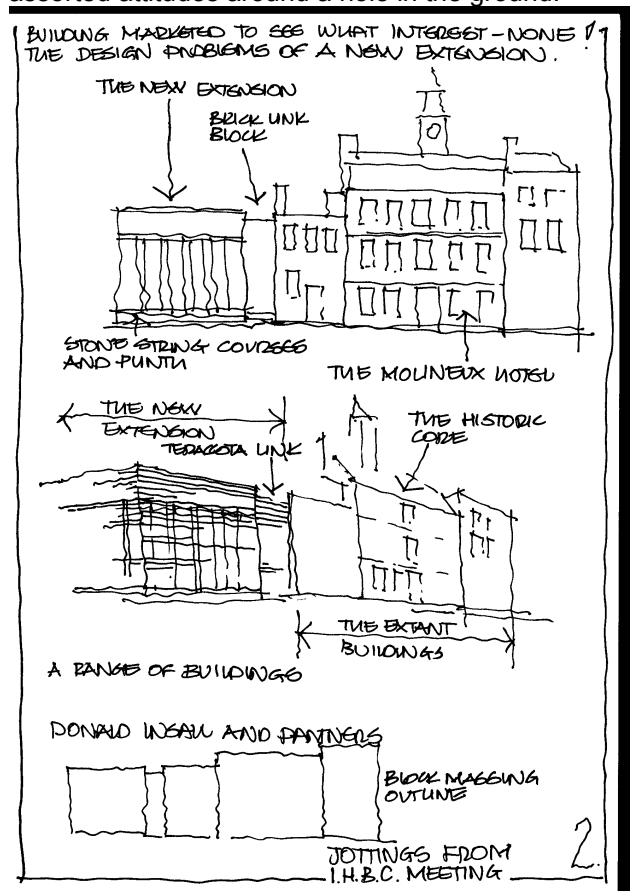 asserted attitudes around a hole in the ground.
BUILDING MARKETED TO SEE WHAT INTEREST - NONE!
THE DESIGN PROBLEMS OF A NEW EXTENSION.
THE NEW EXTENSION
BRICK LINK
BLOCK
STONE STRING COURSES
AND PLINTH
THE MOLINEUX HOTEL
THE NEW
EXTENSION
TERACOTA LINK
THE HISTORIC
CORE
THE EXTANT
BUILDINGS
A RANGE OF BUILDINGS
DONALD INSALL AND PARTNERS
BLOCK MASSING
OUTLINE
JOTTINGS FROM
I.H.B.C. MEETING
2.